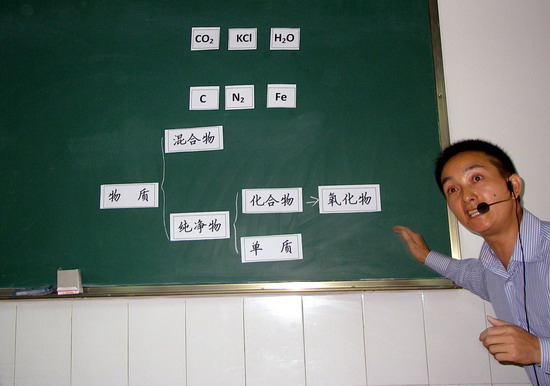 CO₂ KCl H₂O
C N₂ Fe
混合物
物 质
化合物 → 氧化物
纯净物
单 质